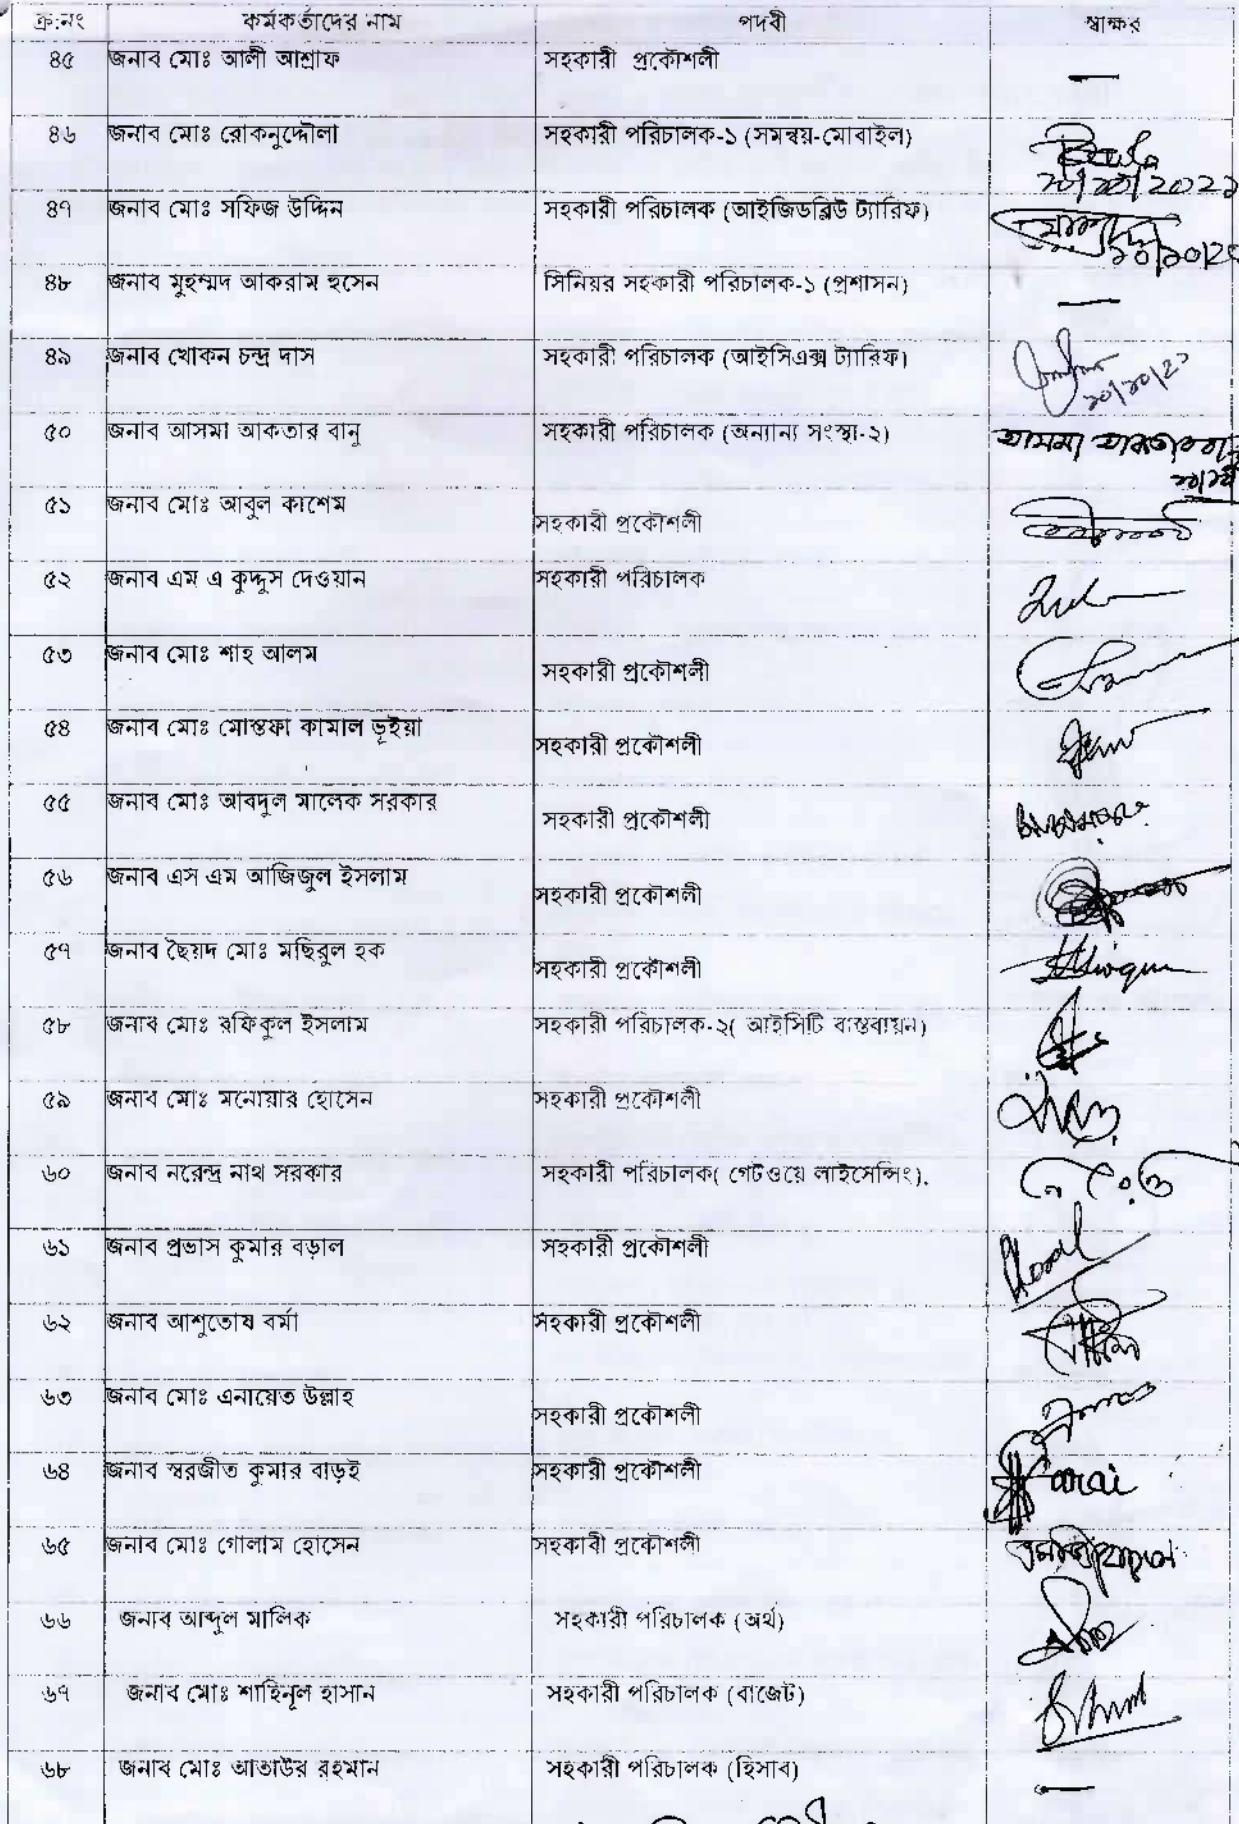 ক্র:নং কর্মকর্তাদের নাম পদবী স্বাক্ষর
৪৫ জনাব মোঃ আলী আশ্রাফ সহকারী প্রকৌশলী —
৪৬ জনাব মোঃ রোকনুদ্দৌলা সহকারী পরিচালক-১ (সমন্বয়-মোবাইল)
৪৭ জনাব মোঃ সফিজ উদ্দিন সহকারী পরিচালক (আইজিডব্লিউ ট্যারিফ)
৪৮ জনাব মুহম্মদ আকরাম হুসেন সিনিয়র সহকারী পরিচালক-১ (প্রশাসন) —
৪৯ জনাব খোকন চন্দ্র দাস সহকারী পরিচালক (আইসিএক্স ট্যারিফ)
৫০ জনাব আসমা আকতার বানু সহকারী পরিচালক (অন্যান্য সংস্থা-২) আসমা আকতার বানু
৫১ জনাব মোঃ আবুল কাশেম সহকারী প্রকৌশলী
৫২ জনাব এম এ কুদ্দুস দেওয়ান সহকারী পরিচালক
৫৩ জনাব মোঃ শাহ আলম সহকারী প্রকৌশলী
৫৪ জনাব মোঃ মোস্তফা কামাল ভূইয়া সহকারী প্রকৌশলী
৫৫ জনাব মোঃ আবদুল মালেক সরকার সহকারী প্রকৌশলী
৫৬ জনাব এস এম আজিজুল ইসলাম সহকারী প্রকৌশলী
৫৭ জনাব ছৈয়দ মোঃ মছিবুল হক সহকারী প্রকৌশলী
৫৮ জনাব মোঃ রফিকুল ইসলাম সহকারী পরিচালক-২( আইসিটি বাস্তবায়ন)
৫৯ জনাব মোঃ মনোয়ার হোসেন সহকারী প্রকৌশলী
৬০ জনাব নরেন্দ্র নাথ সরকার সহকারী পরিচালক( গেটওয়ে লাইসেন্সিং).
৬১ জনাব প্রভাস কুমার বড়াল সহকারী প্রকৌশলী
৬২ জনাব আশুতোষ বর্মা সহকারী প্রকৌশলী
৬৩ জনাব মোঃ এনায়েত উল্লাহ সহকারী প্রকৌশলী
৬৪ জনাব স্বরজীত কুমার বাড়ই সহকারী প্রকৌশলী
৬৫ জনাব মোঃ গোলাম হোসেন সহকারী প্রকৌশলী
৬৬ জনাব আব্দুল মালিক সহকারী পরিচালক (অর্থ)
৬৭ জনাব মোঃ শাহিনূল হাসান সহকারী পরিচালক (বাজেট)
৬৮ জনাব মোঃ আতাউর রহমান সহকারী পরিচালক (হিসাব) —